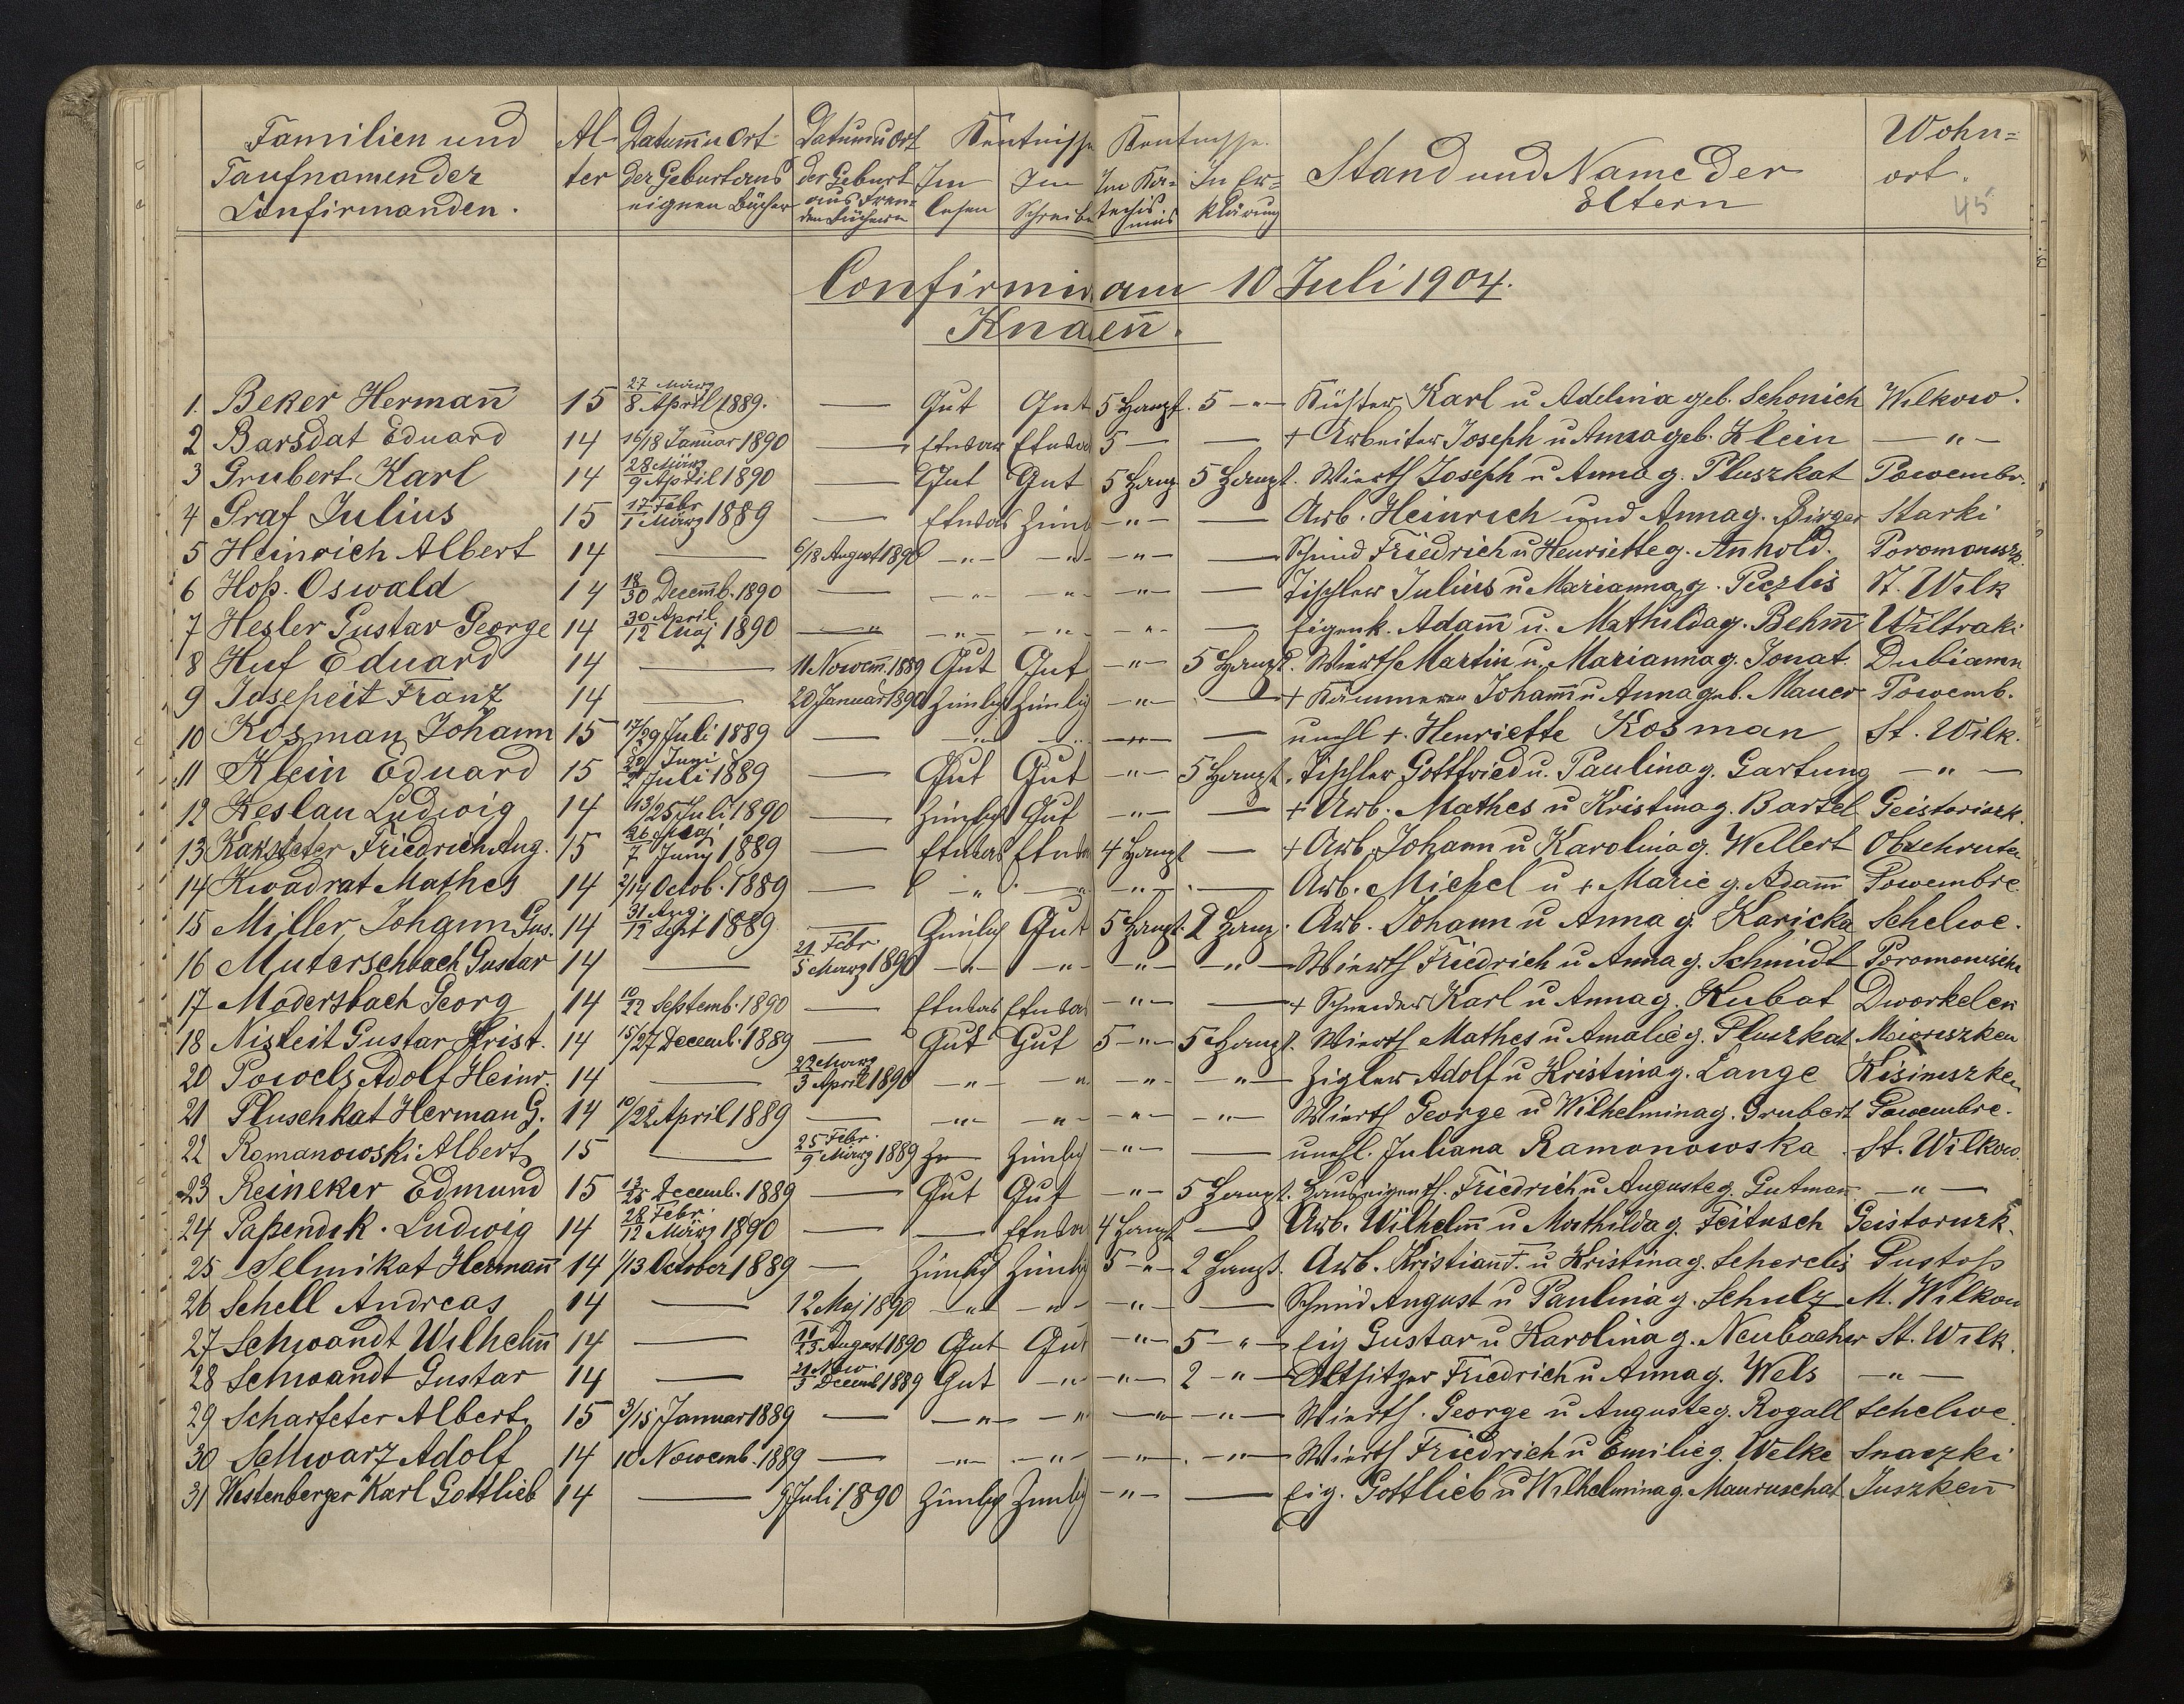 Familien und Al- Datum u Ort Datum u Ort Kentnisse Kentnisse. Stand und Name der Wohn=
Taufnamen der ter der Geburt aus der Geburt Im Im Im Ka= In Er= Eltern ort.
Confirmanden. eignen Bücher aus Frem= den Büchern lesen Schreiben techis mus klärung 45
Confirmir am 10 Juli 1904.
Knaben.
1. Beker Hermañ 15 27 März/8 April 1889. — Gut Gut 5 Haupt. 5 -"- Küster Karl u Adelina geb. Schonich Wilkow.
2 Barsdat Eduard 14 16/18 Januar 1890 — Etwas Etwas 5 — — + Arbeiter Joseph u Anna geb. Klein -"-
3 Grubert Karl 14 28 März/9 April 1890 — Gut Gut 5 Haup 5 Haupt. Wierth Joseph u Anna g. Pluszkat Powembr.
4 Graf Julius 15 17 Febr/1 März 1889 — Etwas Zimb -"- — Arb. Heinrich und Anna g. Birger Starki
5 Heinrich Albert 14 — 6/18 August 1890 -"- -"- -"- — Schmid Friedrich u Henriette g. Anhold. Poromonszk.
6 Hoß. Oswald 14 18/30 Decemb. 1890 — -"- -"- -"- — Tischler Julius u Marianna g. Peczlis St. Wilk
7 Hesler Gustav George 14 30 April/12 Maj 1890 -"- -"- -"- -"- — Eigenk. Adam̄ u. Mathilda g. Behm̄ Wiltraki
8 Huf Eduard 14 — 11 Nowem. 1889 Gut Gut -"- 5 Haupt. Wierth Martin u. Marianna g. Jonat. Dubiann
9 Josepeit Franz 14 — 20 Januar 1890 Zimlig Zimlig -"- — + Kämmerer Johann u Anna geb. Mauer Powemb.
10 Kosman Johann 15 17/29 Juli 1889 — -"- -"- -"- — unehl +. Henriette Kosman St. Wilk.
11 Klein Eduard 15 20 Juni/2 Juli 1889 — Gut Gut -"- 5 Haupt. Tischler Gottfried u. Paulina g. Gartung -"-
12 Keslau Ludwig 14 13/25 Juli 1890 — Zimlig Gut -"- — + Arb. Mathes u Kristina g. Bartel Geistoriszk.
13 Kakszteter Friedrich Aug. 15 26 Maj/7 Juny 1889 — Etwas Etwas 4 Haupt — + Arb. Johann u Karolina g. Wellert Obschruten
14 Kwadrat Mathes 14 2/14 Octob. 1889 — -"- -"- -"- — Arb. Michel u + Marie g. Adam̄ Powembre.
15 Miller Johann Gus. 14 31 Aug./12 Sept 1889 — Zimlig Gut 5 Haupt. 2 Haup. Arb. Johann u Anna g. Karicka Schelwe.
16 Muterschbach Gustav 14 — 21 Febr/5 März 1890 -"- -"- -"- -"- Wierth Friedrich u Anna g. Schmidt Poromonische
17 Modersbach Georg 14 10/22 Septemb. 1890 — Etwas Etwas -"- — + Schneider Karl u Anna g. Kubat Dworkeleñ
18 Nisleit Gustav Krist. 14 15/27 Decemb. 1889 — Gut Gut 5 -"- 5 Haupt. Wierth Mathes u Amalie g. Pluszkat Moioruszken
20 Powels Adolf Heinr. 14 — 22 März/3 April 1890 -"- -"- -"- -"- Zigler Adolf u Kristina g. Lange Kisiniszken
21 Pluschkat Herman G. 14 10/22 April 1889 — -"- -"- -"- -"- Wierth George u Wilhelmina g. Grubert Powembre.
22 Romanowski Albert 15 — 25 Febr./9 März 1889 Zu— Zimlig -"- — unehl. Juliana Ramonowska St. Wilkow.
23 Reineker Edmund 15 13/25 Decemb. 1889 — Gut Gut -"- 5 Haupt. Hauseigenth. Friedrich u Auguste g. Gutmann -"-
24 Paßendik. Ludwig 14 28 Febr./12 März 1890 — — Etwas 4 Haupt — Arb. Wilhelm̄ u Mathilda g. Feitusch Geistoruzk.
25 Selmikat Hermanñ 14 1/13 October 1889 — Zimlig Zimlig 5 -"- 2 Haupt. Arb. Kristiann †. u Kristina g. Scherelis Gustoß
26 Schell Andreas 14 — 12 Maj 1890 -"- -"- -"- — Schmid August u Paulina g. Schulz M. Wilkow
27 Schwandt Wilhelm̄ 14 — 11/23 August 1890 Gut Gut -"- 5 -"- Eig Gustav u Karolina g. Neubacher St. Wilk.
28 Schwandt Gustav 14 — 21 Now./3 Decemb 1889 Gut -"- -"- 2 -"- Altsitzer Friedrich u Anna g. Wels -"-
29 Scharfeter Albert 15 3/15 Januar 1889 — -"- -"- -"- -"- Wierth. George u Auguste g. Rogall Schelwe.
30 Schwarz Adolf 14 10 Nowemb. 1889 — -"- -"- -"- -"- Wierth Friedrich u Emilie g. Welke Snaszki
31 Westenberger Karl Gottlieb 14 — 9 Juli 1890 Zimlig Zimlig -"- — Eig. Gottlieb u Wilhelmina g. Mauruschat Juszkeñ